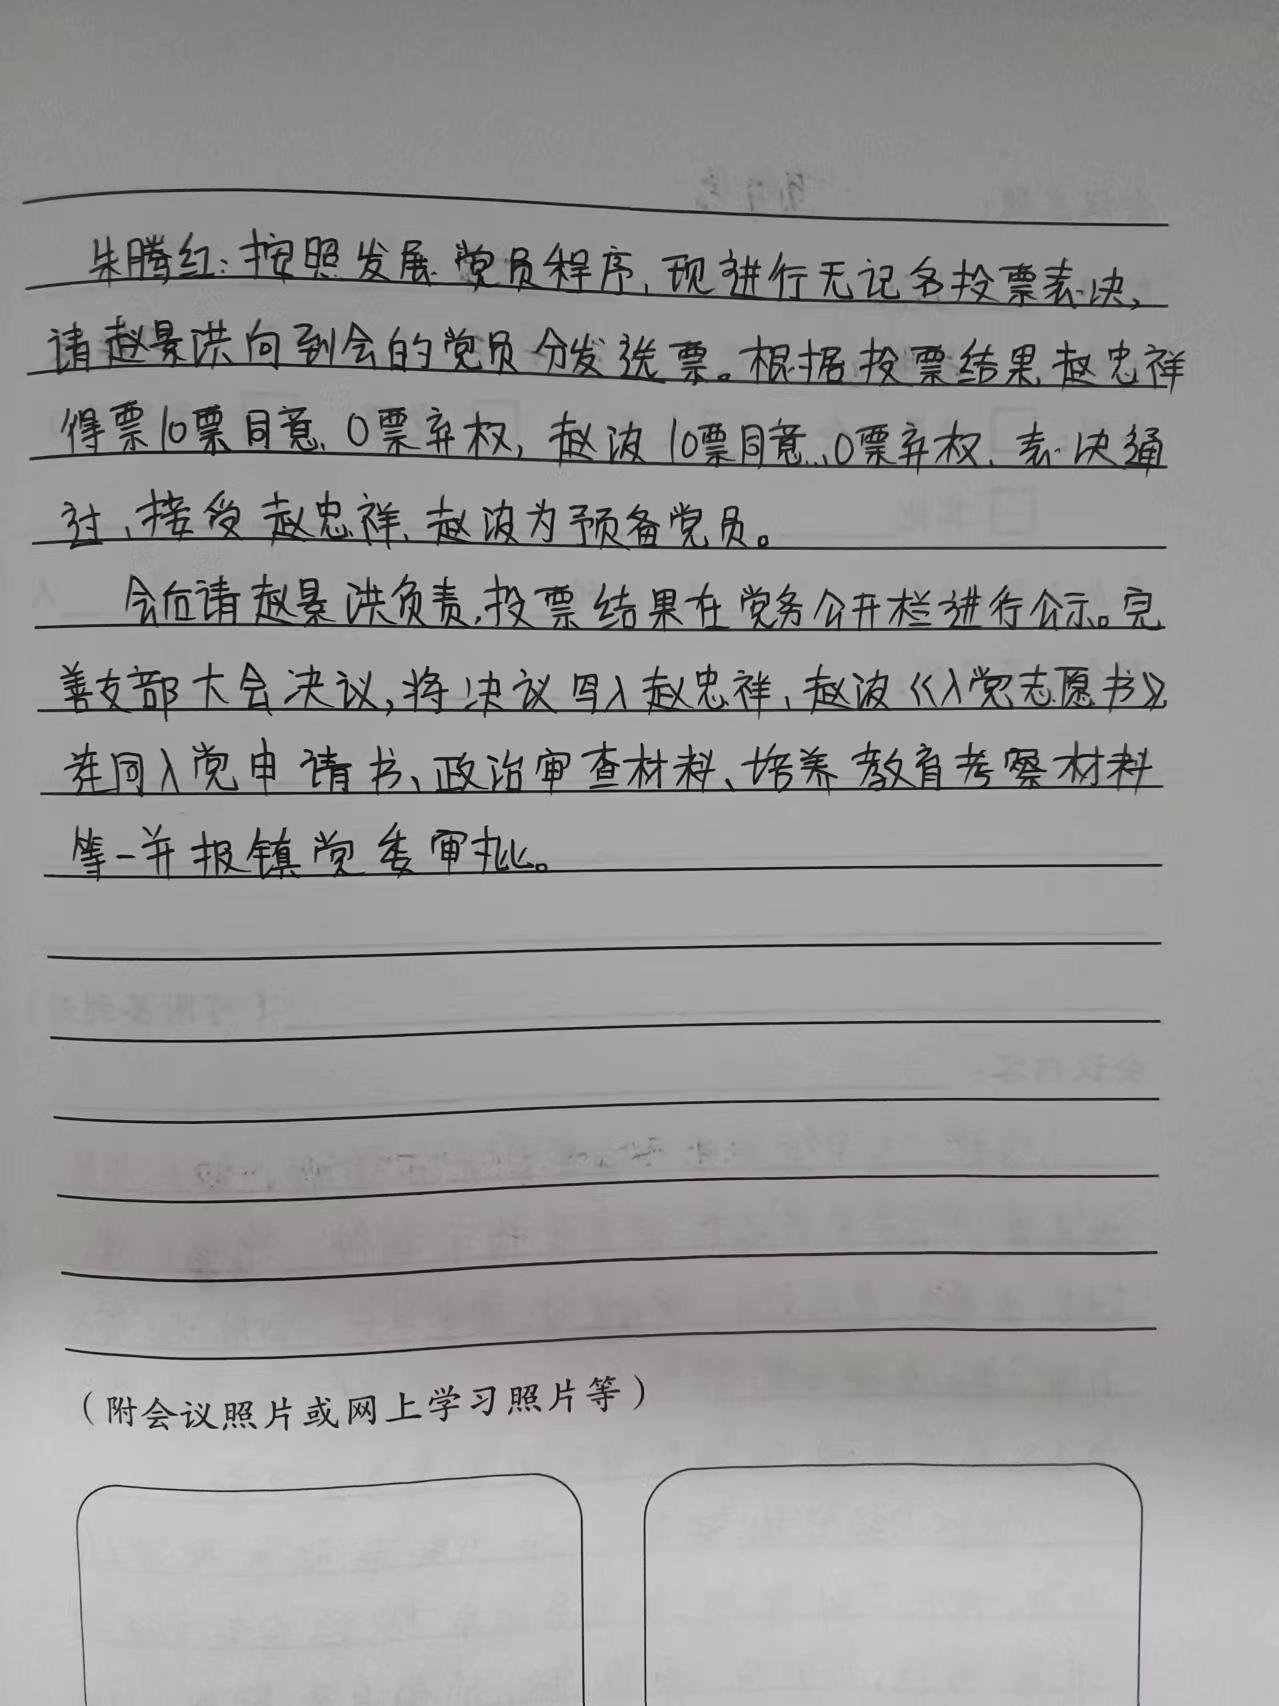 朱腾红:按照发展党员程序,现进行无记名投票表决,
请赵景洪向到会的党员分发选票。根据投票结果赵忠祥
得票10票同意、0票弃权,赵波10票同意、0票弃权、表决通
过,接受赵忠祥、赵波为预备党员。
会后请赵景洪负责,投票结果在党务公开栏进行公示。完
善支部大会决议,将决议写入赵忠祥、赵波《入党志愿书》,
并同入党申请书、政治审查材料、培养教育考察材料
等一并报镇党委审批。
(附会议照片或网上学习照片等)